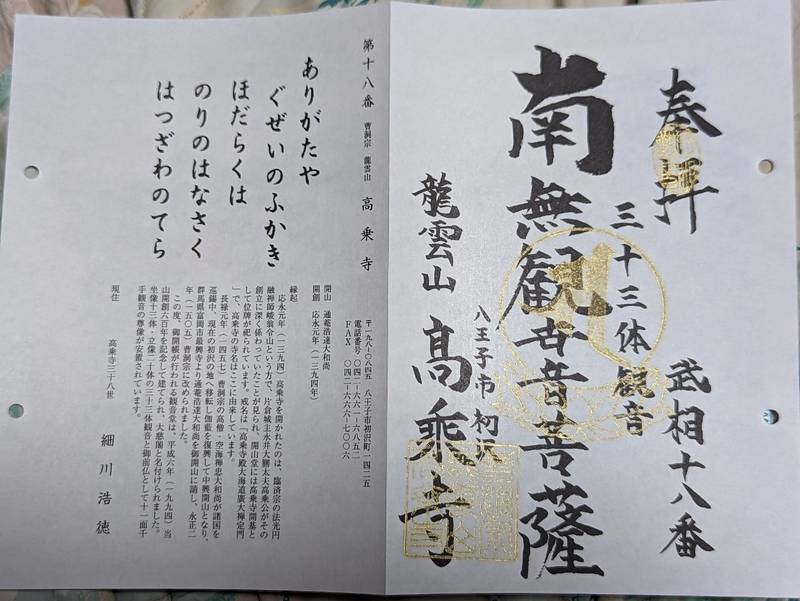 奉拝
武相十八番
三十三体観音
南無観世音菩薩
八王子市初沢
龍雲山 高乗寺
第十八番 曹洞宗 龍雲山 高乗寺
ありがたや
ぐぜいのふかき
ほだらくは
のりのはなさく
はつざわのてら
〒一九八-〇八四五 八王子市初沢町一四二五
電話番号 〇四二-六六一-六八五二
FAX 〇四二-六六六-七〇〇六
開山 通菴浩達大和尚
開創 応永元年(一三九四年)
縁起
応永元年(一三九四)高乗寺を開かれたのは、臨済宗の法光円
融禅師峻翁令山という方で、片倉城主永井大膳太夫高乗公がその
創立に深く係わっていたことが見られ、開山堂には高乗寺開基と
して位牌が祀られています。戒名は「高乗寺殿大海道廣大禅定門
」で、高乗寺の寺名はここに由来しています。
長禄元年(一四五七)曹洞宗の高僧・空海禅忠大和尚が諸国を
巡錫中、現在の初沢の地へ移転し伽藍を復興して中興開山となり、
群馬県富岡市最興寺より通菴浩達大和尚を御開山に請し、永正二
年(一五〇五)曹洞宗に改められました。
この度、御開帳が行われる観音堂は、平成六年(一九九四)当
山開創六百年を記念して建てられ、大慈閣と名付けられました。
坐像十三体・立像二十体の三十三体観音と御前仏として十一面千
手観音の尊像が安置されています。
現住 高乗寺三十八世 細川浩徳